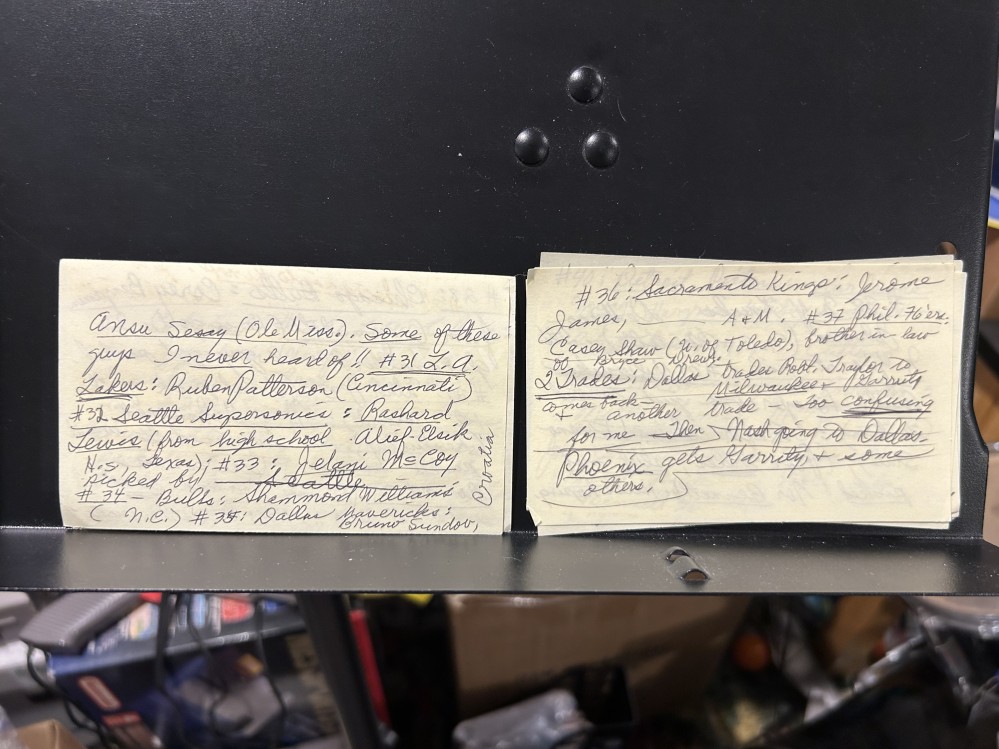 Ansu Sesay (Ole Miss.). Some of these
guys I never heard of!! #31 L.A.
Lakers: Ruben Patterson (Cincinnati)
#32 Seattle Supersonics: Rashard
Lewis (from high school Alief-Elsik
H.S. Texas); #33: Jelani McCoy
picked by Seattle
#34 - Bulls: Shammond Williams
(N.C.) #35: Dallas Mavericks:
Bruno Sundov,
Croatia
#36: Sacramento Kings: Jerome
James, A & M. #37 Phil. 76'ers:
Casey Shaw (U. of Toledo), brother in law
of Bryce Drew.
2 Trades: Dallas trades Robt. Traylor to
Milwaukee + Garrity
comes back -
another trade - too confusing
for me Then Nash going to Dallas.
Phoenix gets Garrity + some
others.